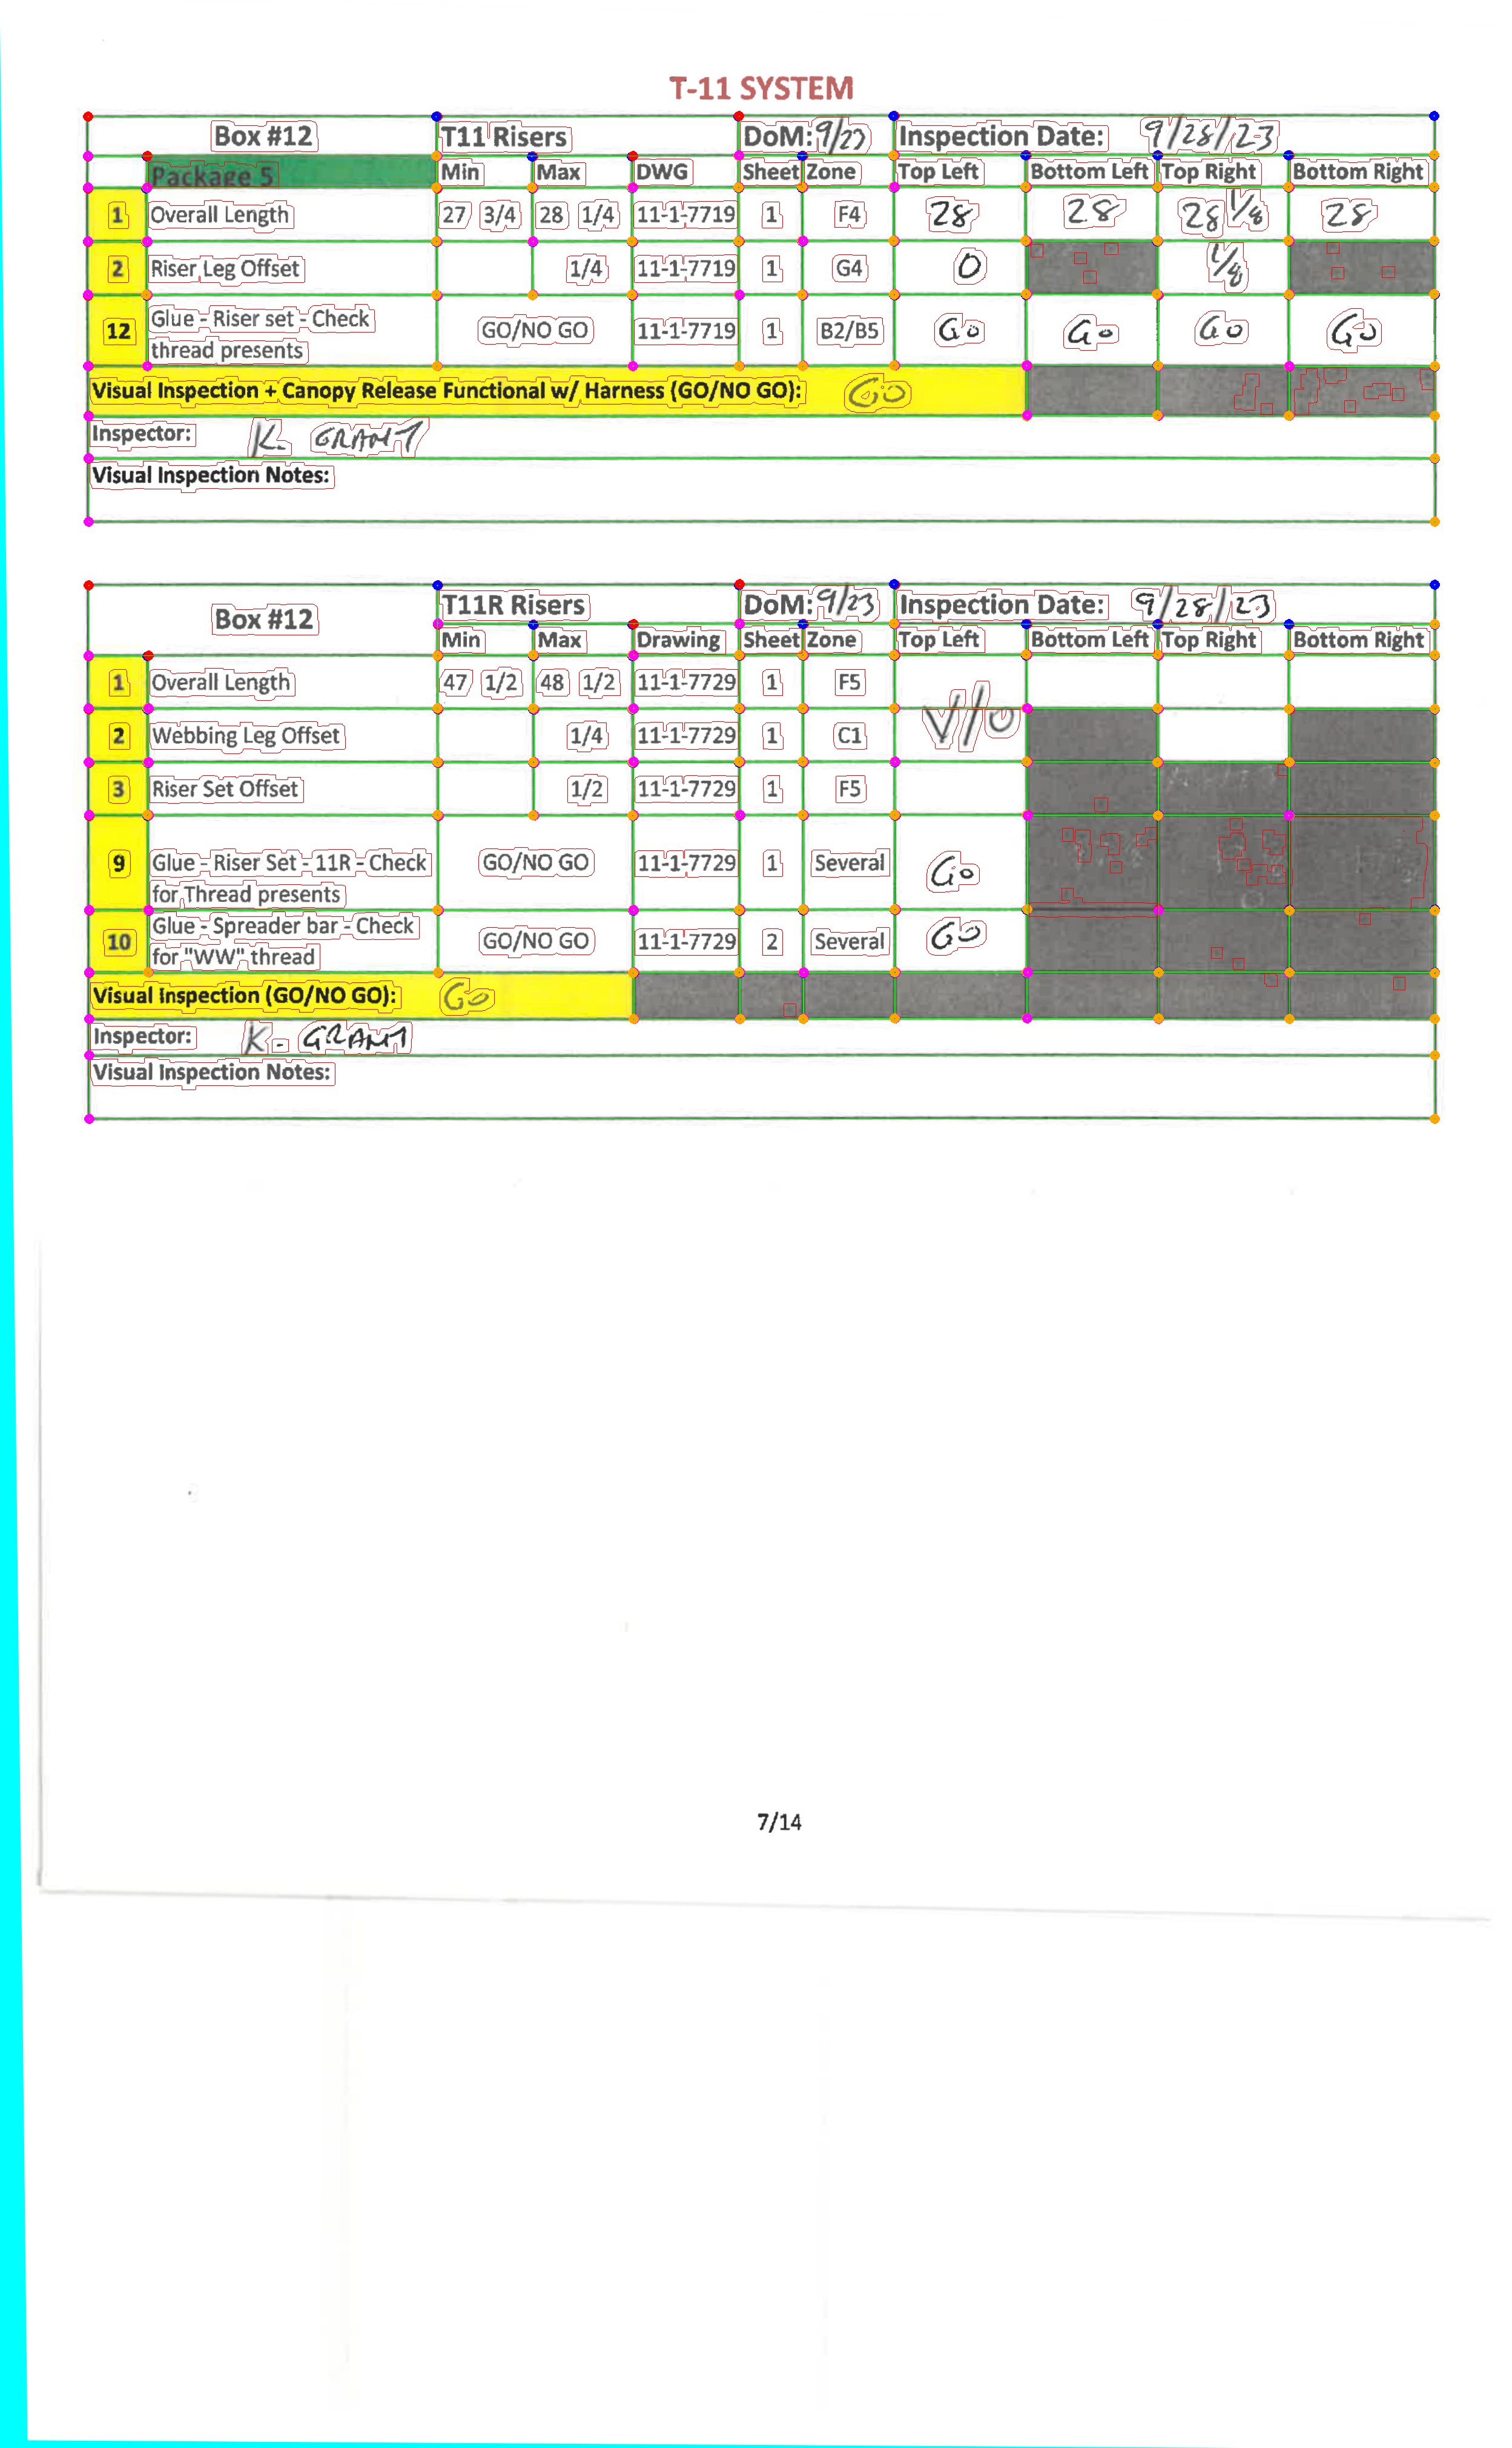 T-11 SYSTEM
Box #12 T11 Risers DoM: 9/23 Inspection Date: 9/28/23
Package 5 Min Max DWG Sheet Zone Top Left Bottom Left Top Right Bottom Right
1 Overall Length 27 3/4 28 1/4 11-1-7719 1 F4 28 28 28 1/8 28
2 Riser Leg Offset 1/4 11-1-7719 1 G4 0 1/8
12 Glue - Riser set - Check
thread presents GO/NO GO 11-1-7719 1 B2/B5 Go Go Go Go
Visual Inspection + Canopy Release Functional w/ Harness (GO/NO GO): GO
Inspector: K. GRANT
Visual Inspection Notes:
Box #12 T11R Risers DoM: 9/23 Inspection Date: 9/28/23
Min Max Drawing Sheet Zone Top Left Bottom Left Top Right Bottom Right
1 Overall Length 47 1/2 48 1/2 11-1-7729 1 F5
2 Webbing Leg Offset 1/4 11-1-7729 1 C1 V/O
3 Riser Set Offset 1/2 11-1-7729 1 F5
9 Glue - Riser Set - 11R - Check
for Thread presents GO/NO GO 11-1-7729 1 Several Go
10 Glue - Spreader bar - Check
for "WW" thread GO/NO GO 11-1-7729 2 Several GO
Visual Inspection (GO/NO GO): GO
Inspector: K. GRANT
Visual Inspection Notes:
7/14